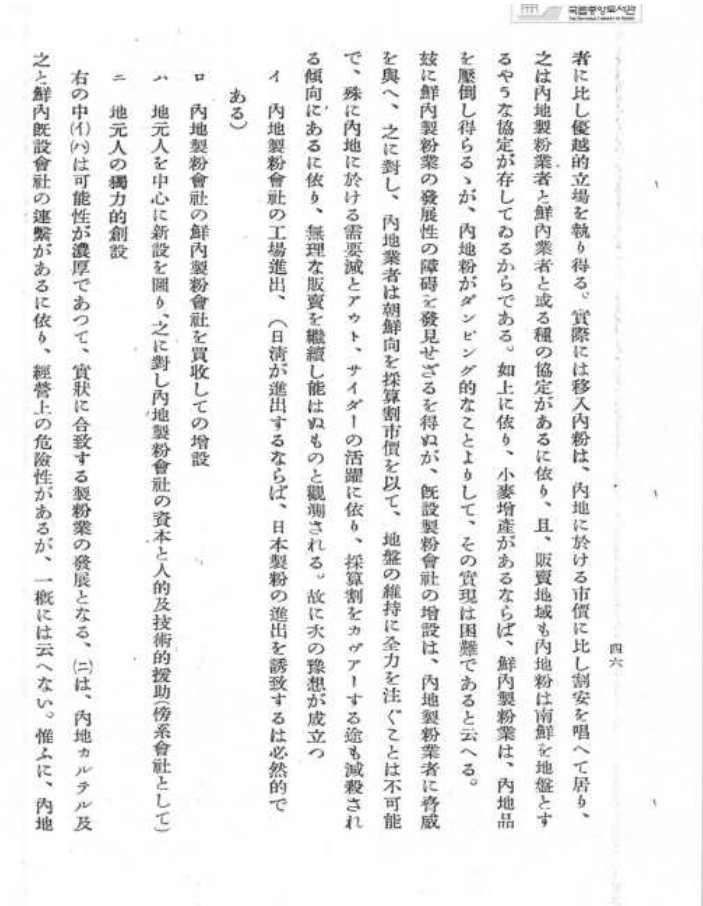 국립중앙도서관
四六
者に比し優越的立場を執り得る。實際には移入內粉は、內地に於ける市價に比し割安を唱へて居り、
之は內地製粉業者と鮮內業者と或る種の協定があるに依り、且、販賣地域も內地粉は南鮮を地盤とす
るやうな協定が存してゐるからである。如上に依り、小麥增產があるならば、鮮內製粉業は、內地品
を壓倒し得らるゝが、內地粉がダンピング的なことよりして、その實現は困難であると云へる。
玆に鮮內製粉業の發展性の障碍を發見せざるを得ぬが、旣設製粉會社の增設は、內地製粉業者に脅威
を與へ、之に對し、內地業者は朝鮮向を採算割市價を以て、地盤の維持に全力を注ぐことは不可能
で、殊に內地に於ける需要減とアウト、サイダーの活躍に依り、採算割をカヴアーする途も減殺され
る傾向にあるに依り、無理な販賣を繼續し能はぬものと觀測される。故に次の豫想が成立つ
イ 內地製粉會社の工場進出、(日淸が進出するならば、日本製粉の進出を誘致するは必然的で
ある)
ロ 內地製粉會社の鮮內製粉會社を買收しての增設
ハ 地元人を中心に新設を圖り、之に對し內地製粉會社の資本と人的及技術的援助(傍系會社として)
ニ 地元人の獨力的創設
右の中(イ)(ハ)は可能性が濃厚であつて、實狀に合致する製粉業の發展となる、(ニ)は、內地カルテル及
之と鮮內旣設會社の連繫があるに依り、經營上の危險性があるが、一槪には云へない。惟ふに、內地